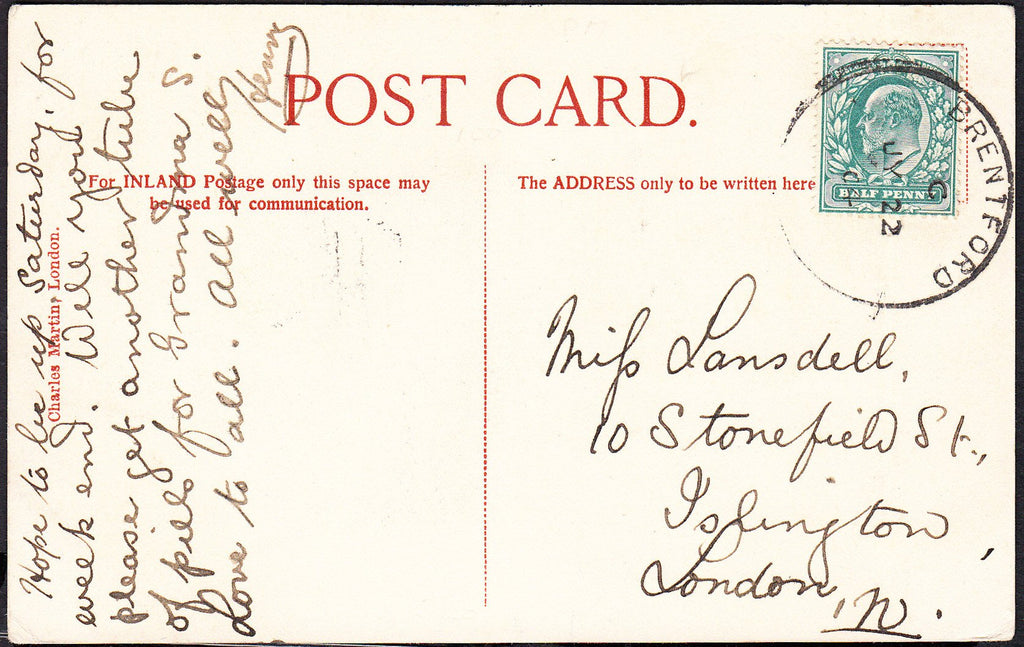 POST CARD.
For INLAND Postage only this space may
be used for communication.
The ADDRESS only to be written here
Charles Martin, London.
HALF PENNY
BRENTFORD
C
JY 22
Hope to be up Saturday. for
week end. Will you
please get another tube
of pills for Grandma S.
Love to all. All well,
Henry
Miss Lansdell,
10 Stonefield St.,
Islington
London, N.